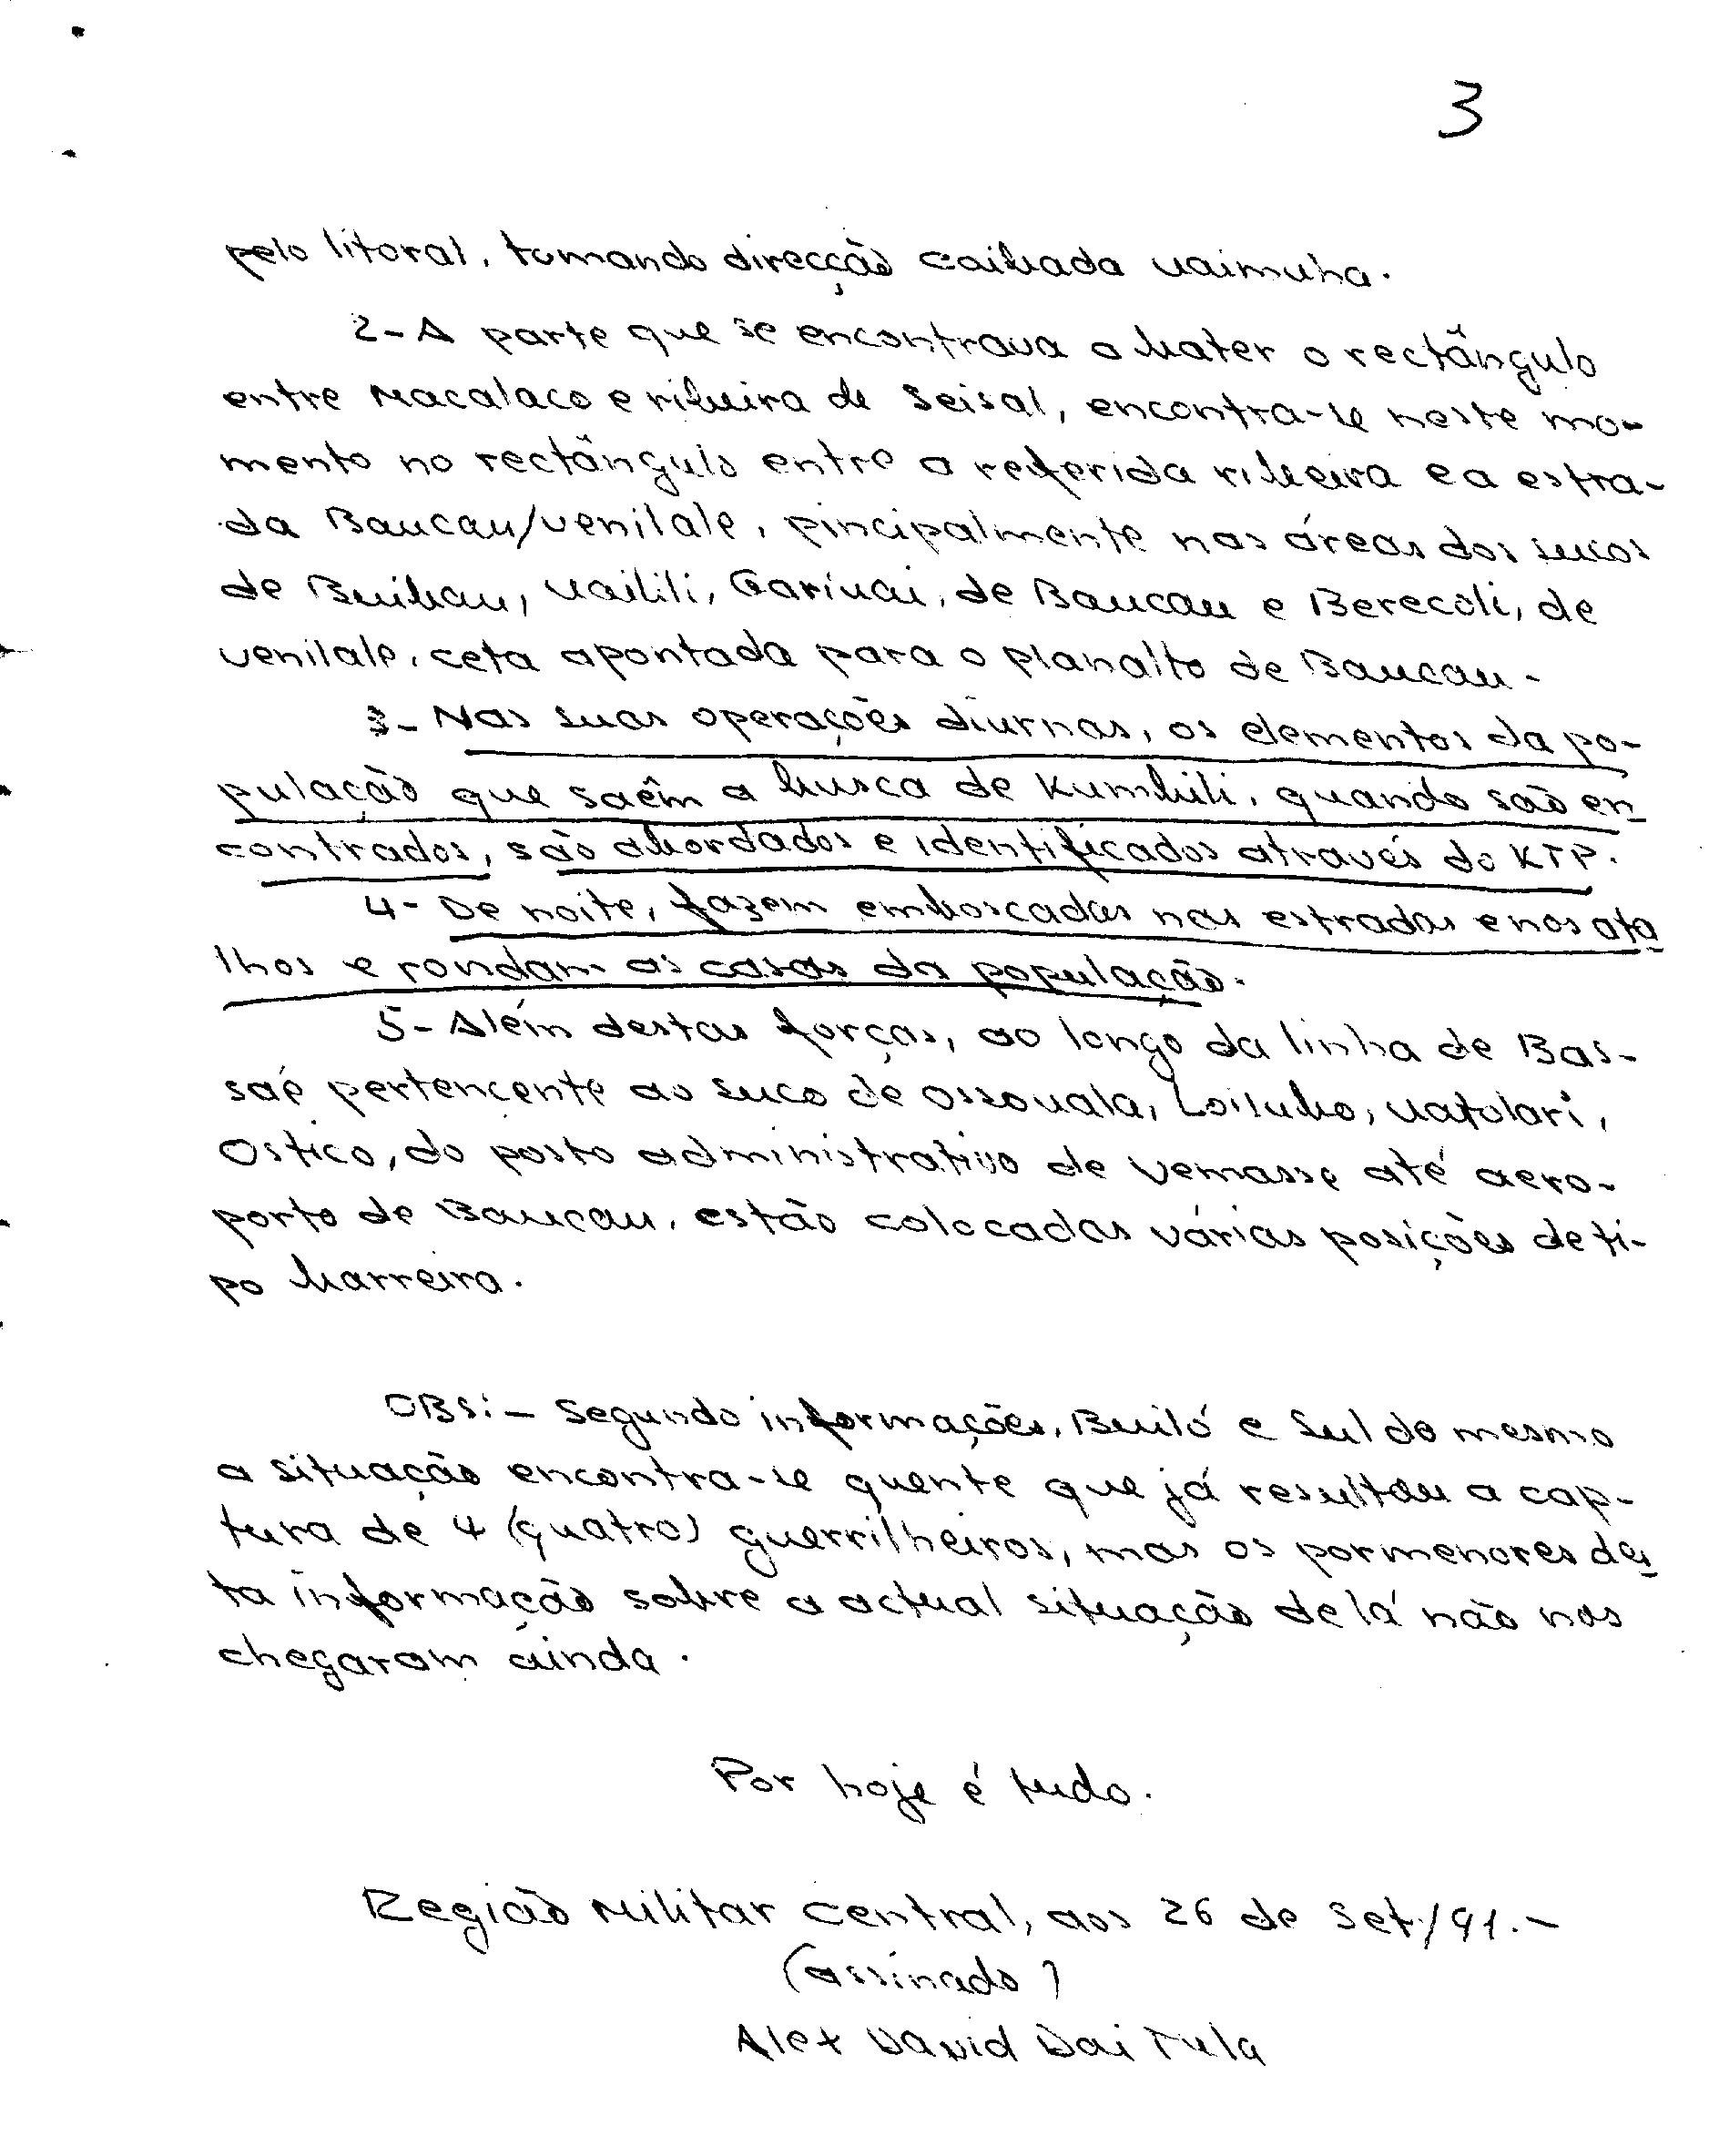 3
pelo litoral, tomando direcção caibada uaimuha.
2- A parte que se encontrava a bater o rectângulo
entre Macalaco e ribeira de Seisal, encontra-se neste mo-
mento no rectângulo entre a referida ribeira e a estra-
da Baucau/Venilale, pincipalmente nas áreas dos sucos
de Buibau, Uailili, Gariuai, de Baucau e Berecoli, de
Venilale, ceta apontada para o planalto de Baucau.
3- Nas suas operações diurnas, os elementos da po-
pulação que saêm a busca de Kumbili, quando são en
contrados, são abordados e identificados através do KTP.
4- De noite, fazem emboscadas nas estradas e nos ata
lhos e rondam as casas da população.
5- Além destas forças, ao longo da linha de Bas-
saé pertencente ao suco de Ossouala, Loilubo, Uatolari,
Ostico, do posto administrativo de Vemasse até aero-
porto de Baucau, estão colocadas várias posições de ti-
po barreira.
OBS: - Segundo informações, Builó e Sul do mesmo
a situação encontra-se quente que já resultou a cap-
tura de 4 (quatro) guerrilheiros, mas os pormenores des
ta informação sobre a actual situação de lá não nos
chegaram ainda.
Por hoje é tudo.
Região Militar Central, aos 26 de Set./91.-
(assinado)
Alex David Dai Tula